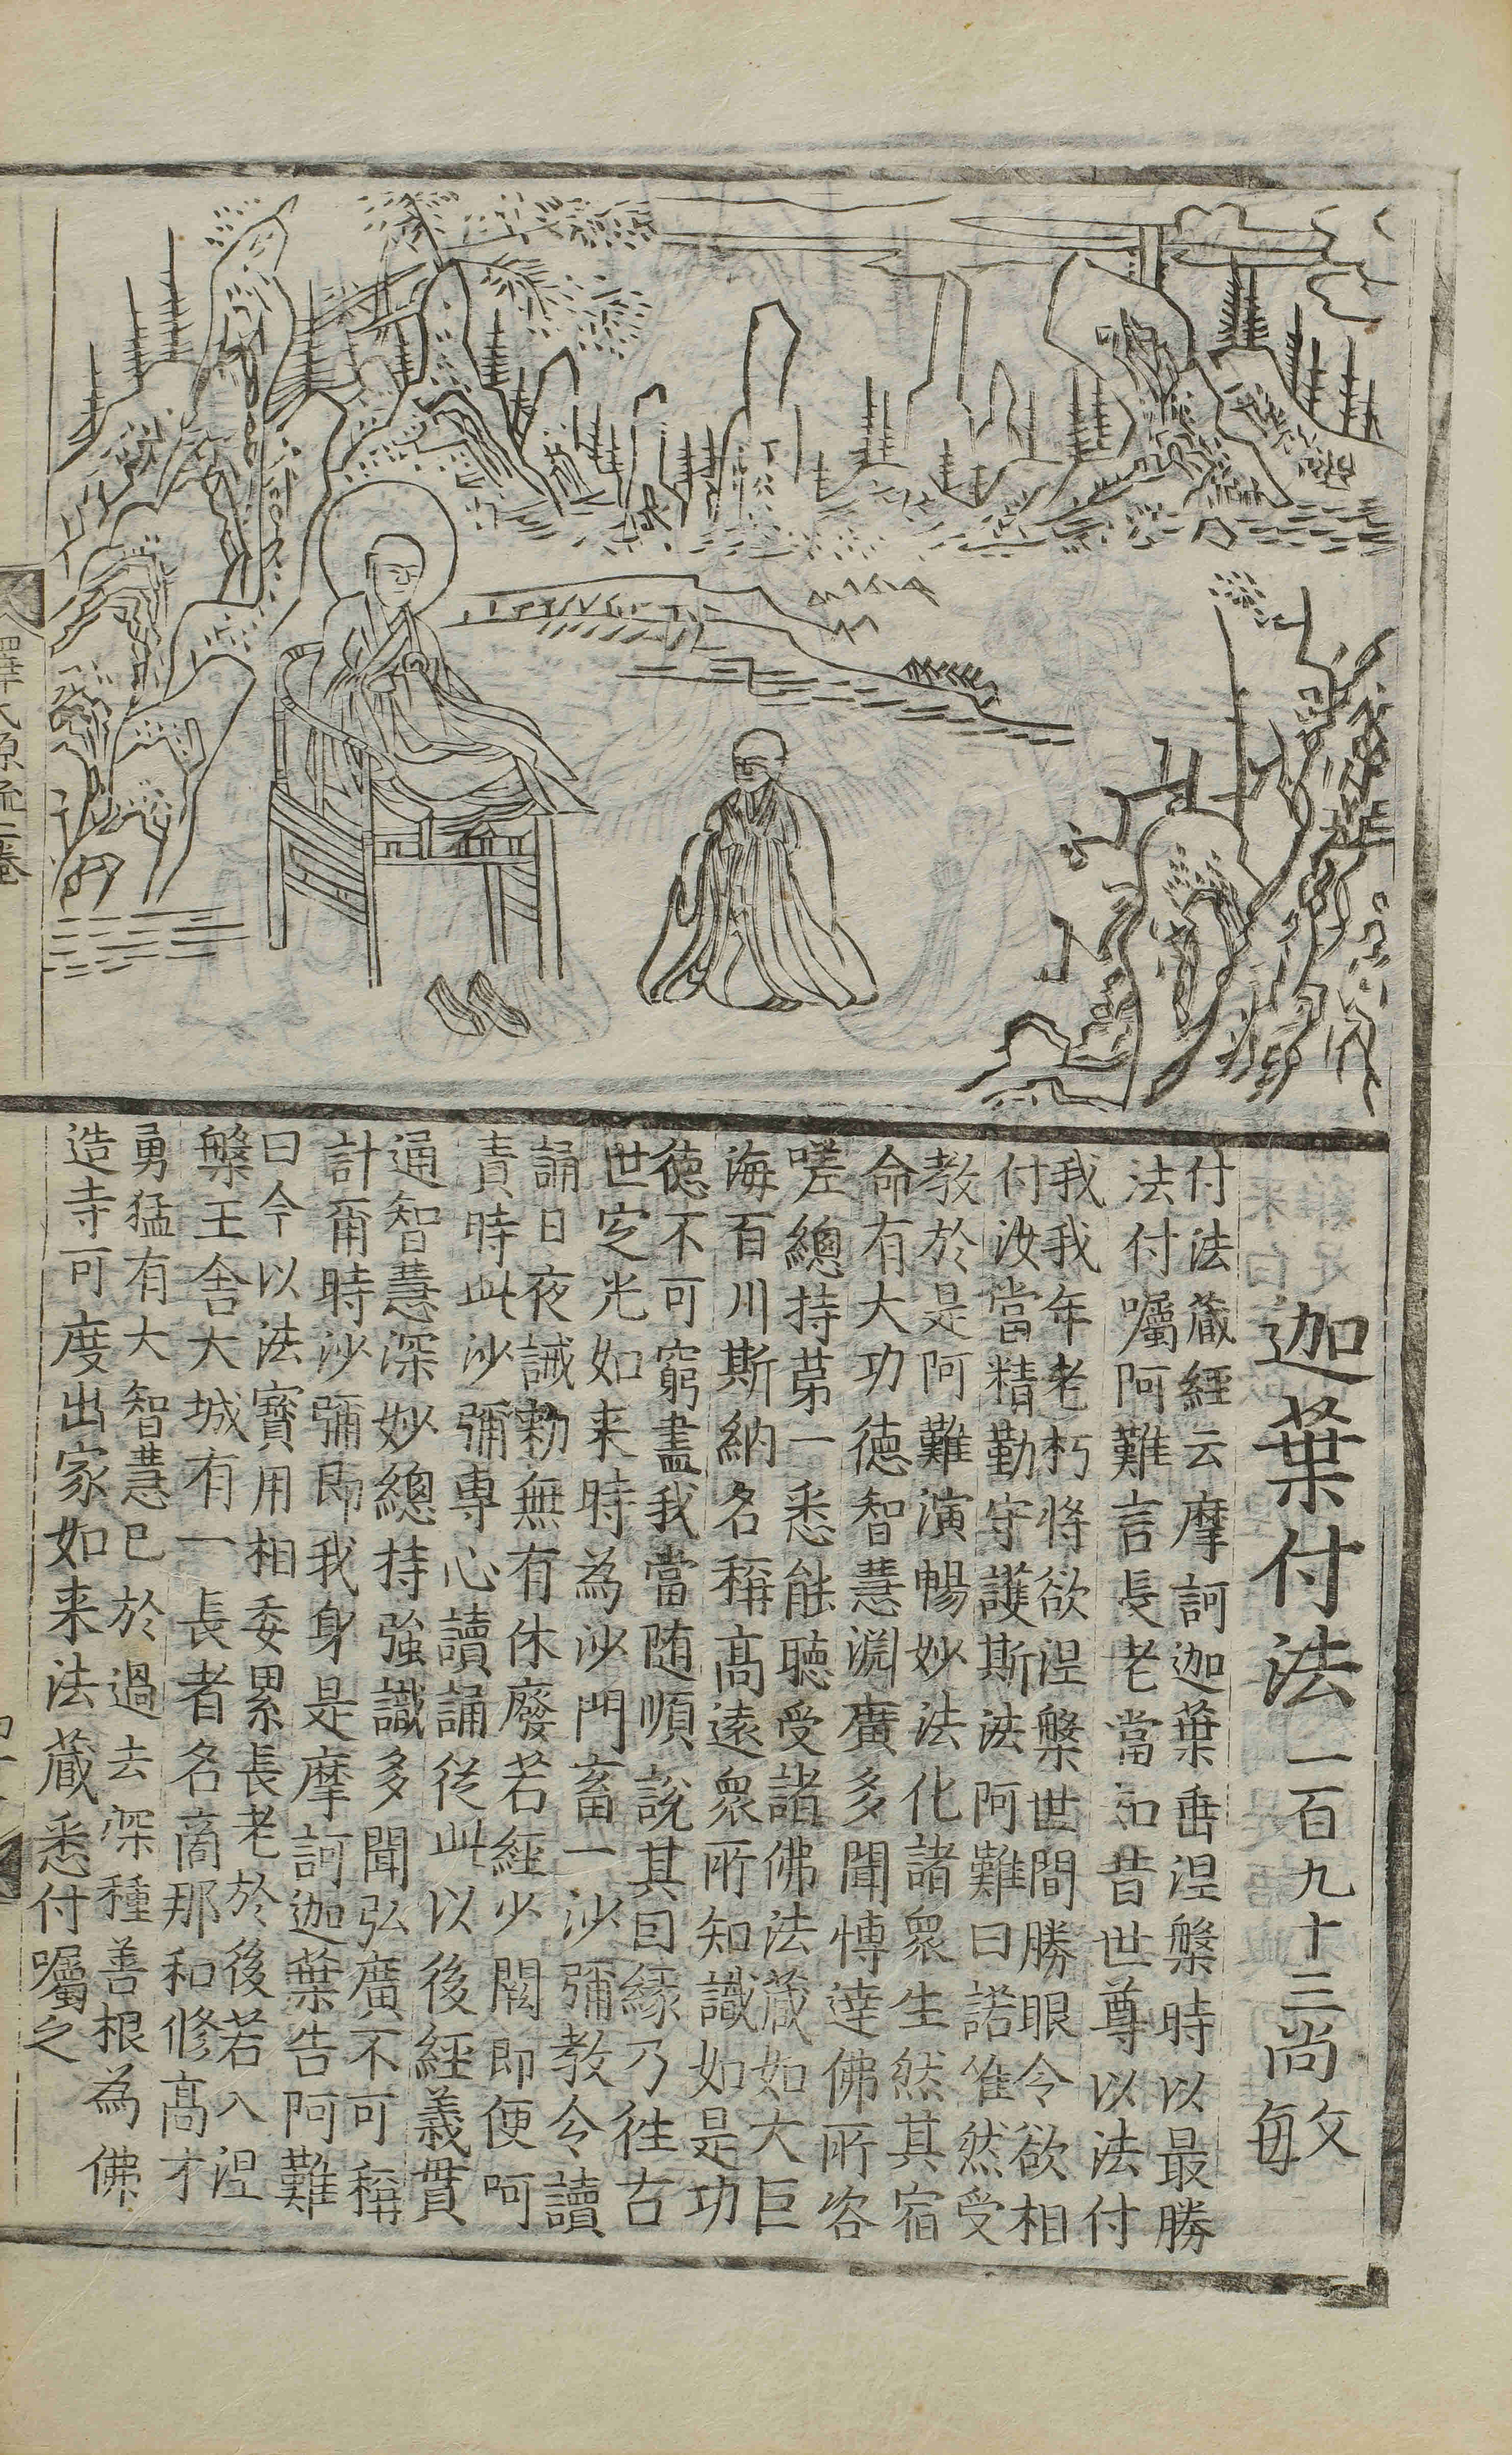 迦葉付法 一百九十三尚文每
付法蔵經云摩訶迦葉垂涅槃時以最勝
法付囑阿難言長老當知昔世尊以法付
我我年老朽將欲涅槃世間勝眼今欲相
付汝當精勤守護斯法阿難曰諾唯然受
教於是阿難演暢妙法化諸衆生然其宿
命有大功德智慧淵廣多聞博達佛所咨
嗟總持苐一悉能聽受諸佛法蔵如大巨
海百川斯納名稱髙遠衆所知識如是功
德不可窮盡我當随順說其因緣乃徃古
世定光如来時為沙門畜一沙彌教令讀
誦日夜誡勅無有休廢若經少闕即便呵
責時此沙彌專心讀誦從此以後經義貫
通智慧深妙總持強識多聞弘廣不可稱
計甭時沙彌即我身是摩訶迦葉告阿難
曰今以法寶用相委累長老於後若入涅
槃王舍大城有一長者名商那和修髙才
勇猛有大智慧已於過去深種善根為佛
造寺可度出家如来法蔵悉付囑之
釋氏原流二卷